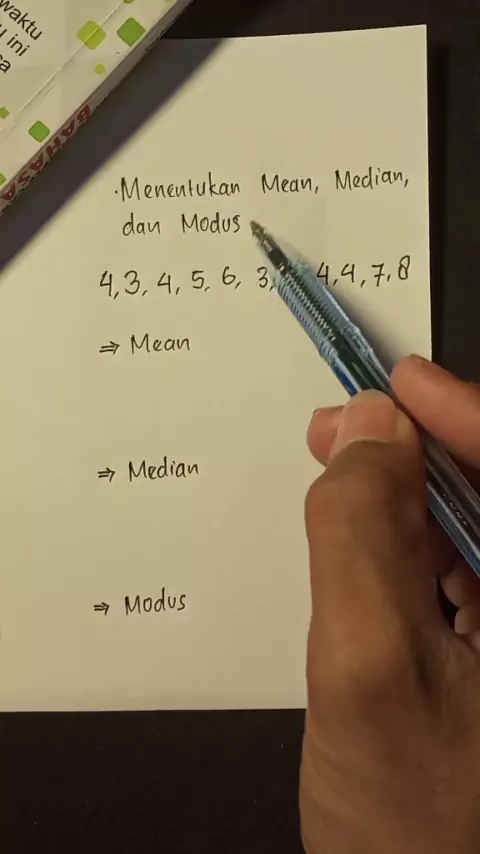 waktu
ini
BAHASA
·Menentukan Mean, Median,
dan Modus
4, 3, 4, 5, 6, 3, 4, 4, 7, 8
⇒ Mean
⇒ Median
⇒ Modus